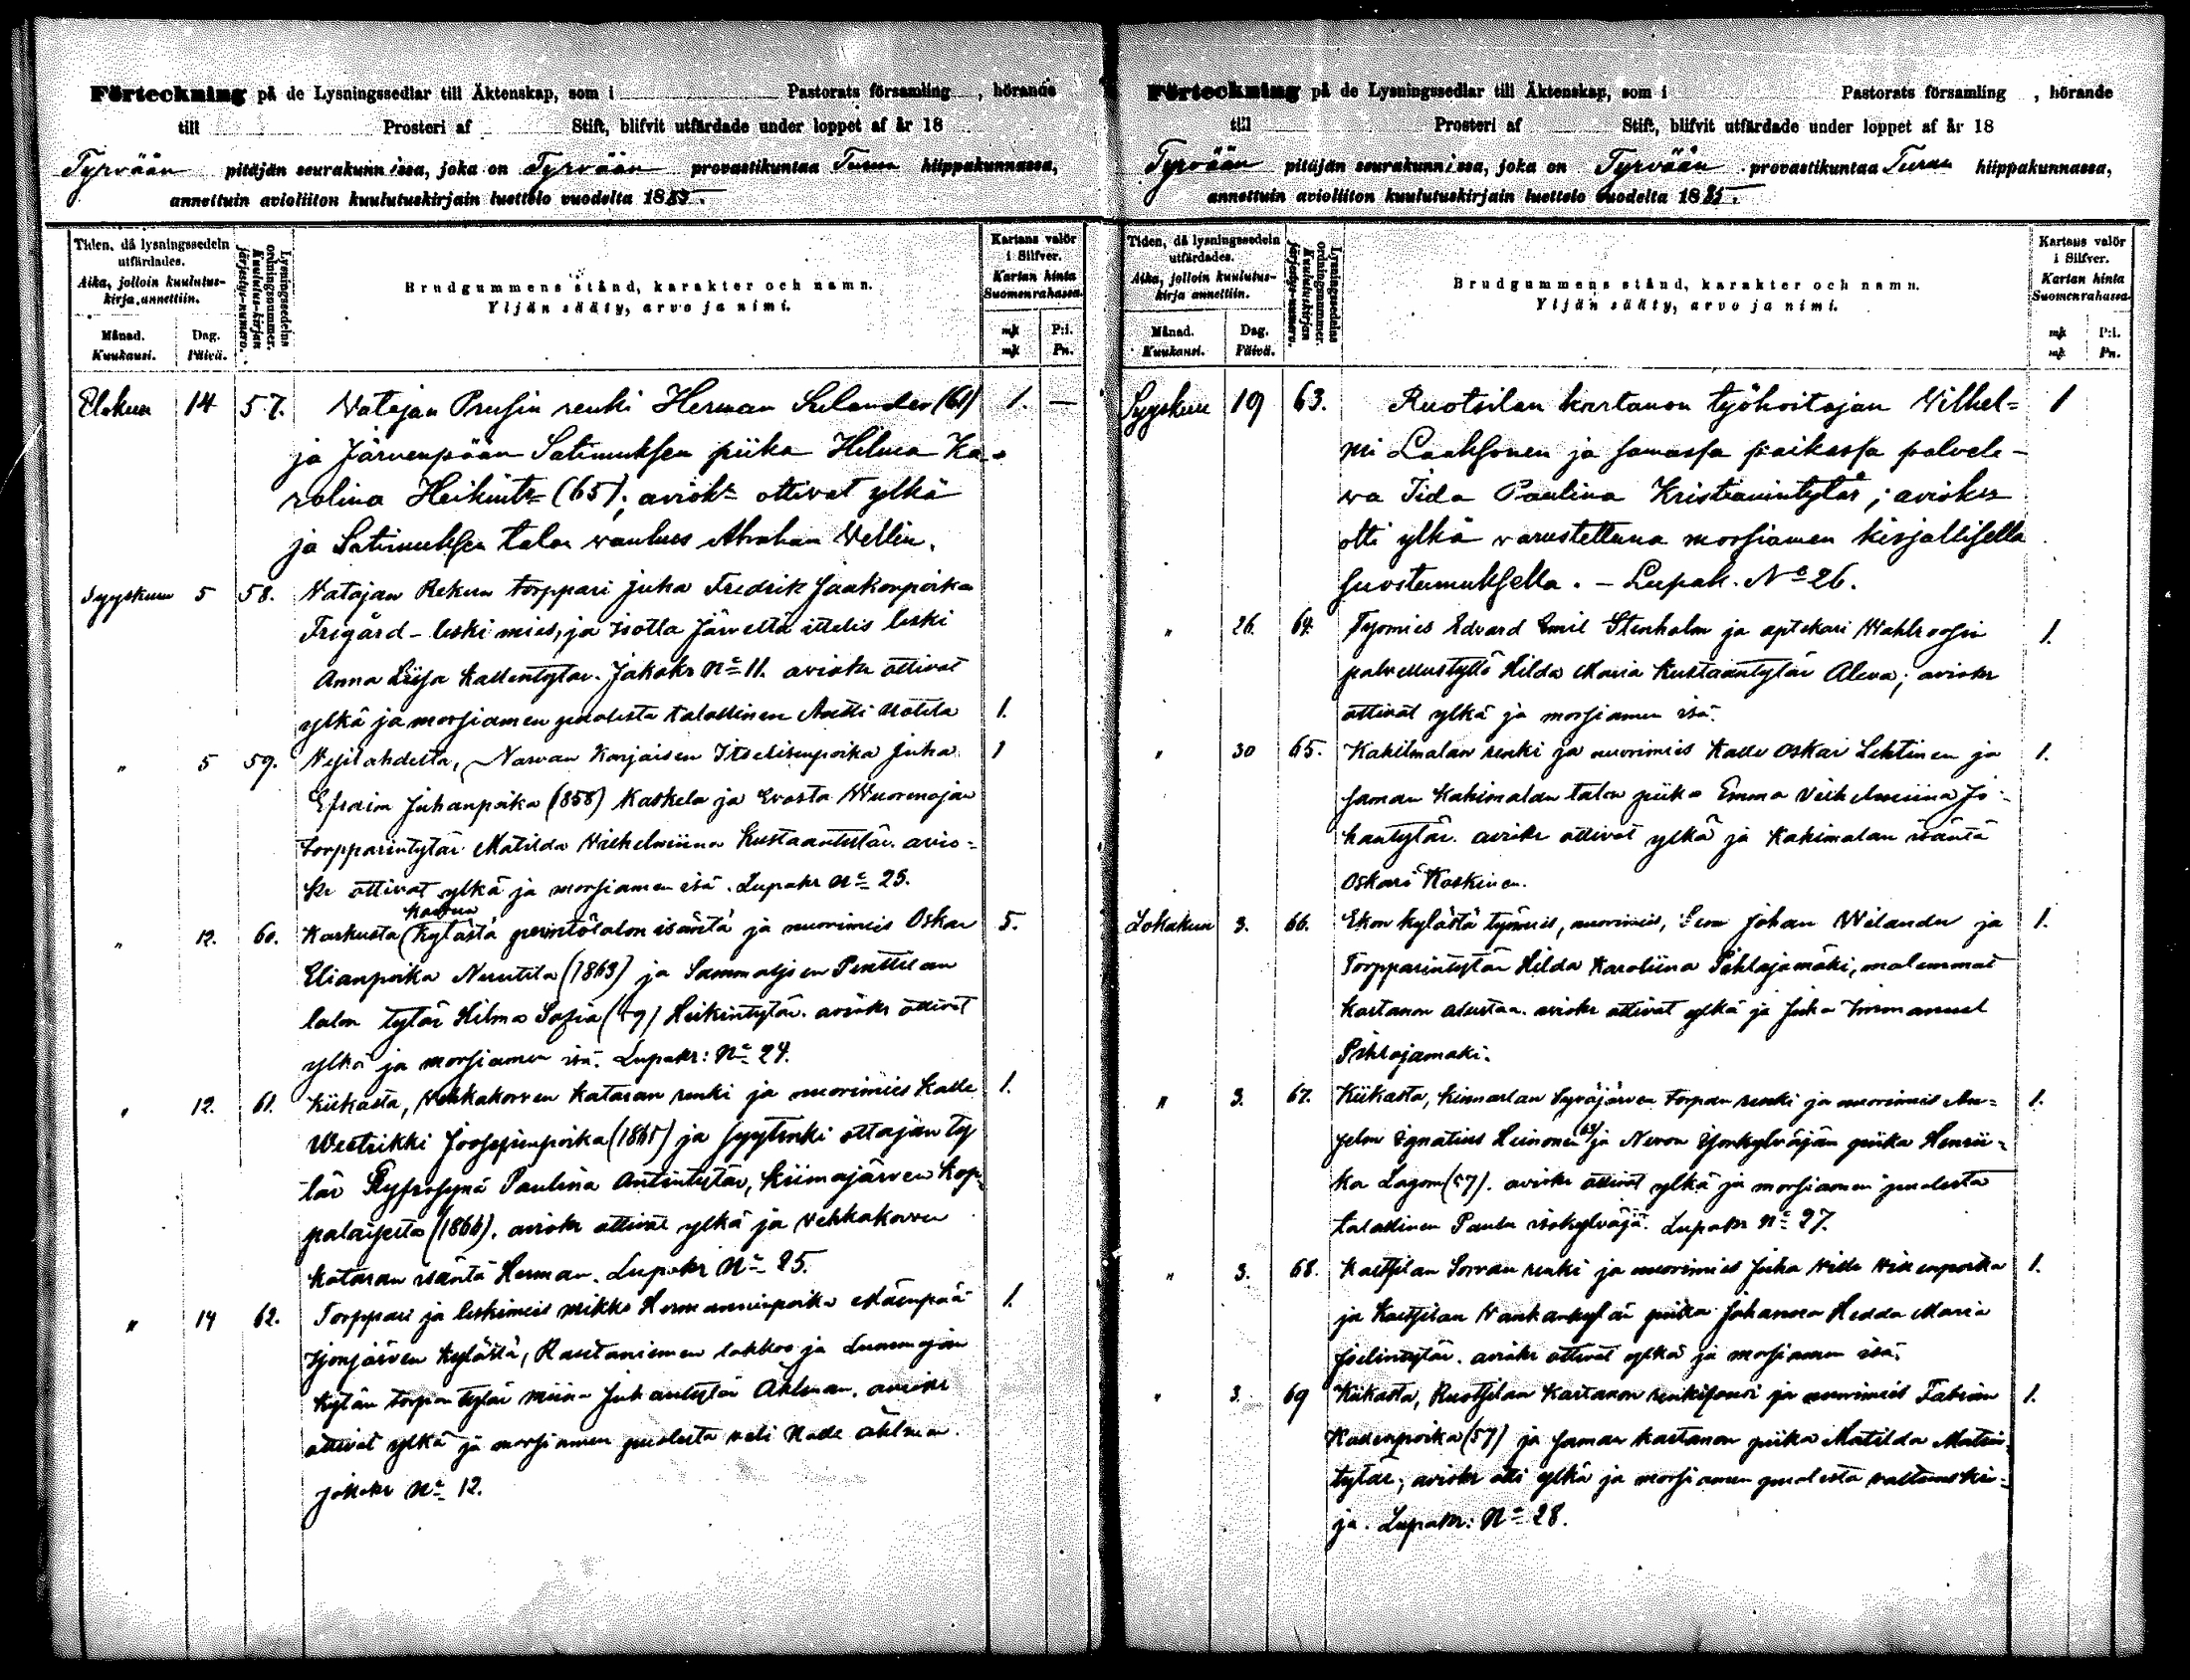 Förteckning på de Lysningssedlar till Äktenskap, som i Pastorats församling , hörande
till Prosteri af Stift, blifvit utfärdade under loppet af år 18
Tyrvään pitäjän seurakunnissa, joka on Tyrvään provastikuntaa Turun hiippakunnassa,
annettuin avioliiton kuulutuskirjain luettelo vuodelta 1885.
Tiden, då lysningssedeln utfärdades.
Aika, jolloin kuulutus-kirja annettiin.
Månad.
Kuukausi.
Dag.
Päivä.
Lysningssedelns ordningsnummer.
Kuulutus-kirjan järjestys-numero.
Brudgummens stånd, karakter och namn.
Yljän sääty, arvo ja nimi.
Kartans valör i Silfver.
Kartan hinta Suomenrahassa.
mk P:i.
mk Pn.
Elokuu 14 57. Vatajan Prusin renki Herman Selander (61) 1. —
ja Järvenpään Satimuksen piika Helma Ka-
rolina Heikint: (65); aviok: ottivat ylkä
ja Satimuksen talon vanhus Abraham Vellin.
Syyskuu 5 58. Vatajan Rekun torppari Juha Fredrik Jaakonpoika
Frigård - leski mies, ja isolla Järveltä ittelis leski
Anna Liisa Kallentytar. Jakokr No 11. aviokr ottivat
ylkä ja morsiamen puolesta talollinen Antti Notila 1.
" 5 59. Vesilahdelta, Narvan Korjaisen Itselisenpoika Juha 1
Efraim Juhanpoika (1858) Kaskela ja Evosta Wuorenojan
torpparintytär Matilda Vilhelmiina Kustaantytär. avio-
kr ottivat ylkä ja morsiamen isä. Lupakr No 23.
" 12. 60. Karkusta (Kylästä perintötalon isäntä ja nuorimies Oskar 5.
Elianpoika Nuutila (1863) ja Sammaljoen Penttilän
talon tytär Hilma Sofia (59) Heikintytär. aviokr ottivat
ylkä ja morsiamen isä. Lupakr: No 24.
" 12. 61. Kiikasta, Vehkakorven Kataran renki ja nuorimies Kalle 1.
Weetrikki Joosepinpoika (1865) ja syytinki ottajan ty
tär Paulina Antintytär, Kiimajärven Kap-
palaisesta (1866). aviokr ottivat ylkä ja Vehkakorven
Kataran isäntä Herman. Lupakr No 25.
" 14 62. Torppari ja leskimies Mikko Hermanninpoika Mäenpää 1.
kylästä, Rautaniemen lohkoo ja
Kylän torpan tytär Miina Juhantytär Åhlman. aviokr
ottivat ylkä ja morsiamen puolesta veli Kalle Åhlman.
Jakokr No 12.
Förteckning på de Lysningssedlar till Äktenskap, som i Pastorats församling , hörande
till Prosteri af Stift, blifvit utfärdade under loppet af år 18
Tyrvään pitäjän seurakunnissa, joka on Tyrvään provastikuntaa Turun hiippakunnassa,
annettuin avioliiton kuulutuskirjain luettelo vuodelta 1885.
Tiden, då lysningssedeln utfärdades.
Aika, jolloin kuulutus-kirja annettiin.
Månad.
Kuukausi.
Dag.
Päivä.
Lysningssedelns ordningsnummer.
Kuulutus-kirjan järjestys-numero.
Brudgummens stånd, karakter och namn.
Yljän sääty, arvo ja nimi.
Kartans valör i Silfver.
Kartan hinta Suomenrahassa.
mk P:i.
mk Pn.
Syyskuu 19 63. Ruotsilan kartanon työhoitajan Vilhel= 1
mi Laaksonen ja samassa paikassa palvele-
va Iida Paulina Kristianintytär; aviokr
otti ylkä varustettuna morsiamen kirjallisella
suostumuksella. - Lupak. No 26.
" 26. 64. Työmies Edvard Emil Stenholm ja aptekari Wahlroosin 1.
palvellustyttö Hilda Maria Kustaantytär Aleva; aviokr
ottivat ylkä ja morsiamen isä.
" 30 65. Kahilmalan renki ja nuorimies Kalle Oskar Lehtinen ja 1.
saman Kahimalan talon piika Emma Vilhelmiina Jo-
hantytär. aviokr ottivat ylkä ja Kahimalan isäntä
Oskari Koskinen.
Lokakuu 3. 66. Ekon kylästä työmies, nuorimies, Johan Welander ja 1.
Torpparintytär Hilda Karoliina Pihlajamäki, molemmat
kartanon alustaa. aviokr ottivat ylkä ja Juha Immanuel
Pihlajamäki.
" 3. 67. Kiikasta, Kinnarlan Syväjärven torpan renki ja nuorimies An= 1.
selm Ignatius Heinonen (63) ja Nevon piika Henrii=
ka Lagom (57). aviokr ottivat ylkä ja morsiamen puolesta
talollinen Paulu isokylväjä. Lupakr No 27.
" 3. 68. Kaltsilan Sorvan renki ja nuorimies Juha Ville Villenpoika 1.
ja Kaltsilan Vanhankylän piika Johanna Hedda Maria
Iselintytär. aviokr ottivat ylkä ja morsiamen isä.
" 3. 69 Kiikasta, Ruotsilan Kartanon renkivouti ja nuorimies Fabian 1.
Kallenpoika (57) ja saman kartanon piika Matilda Matin-
tytär; aviokr otti ylkä ja morsiamen puolesta valtuuskir-
ja. Lupakr: No 28.